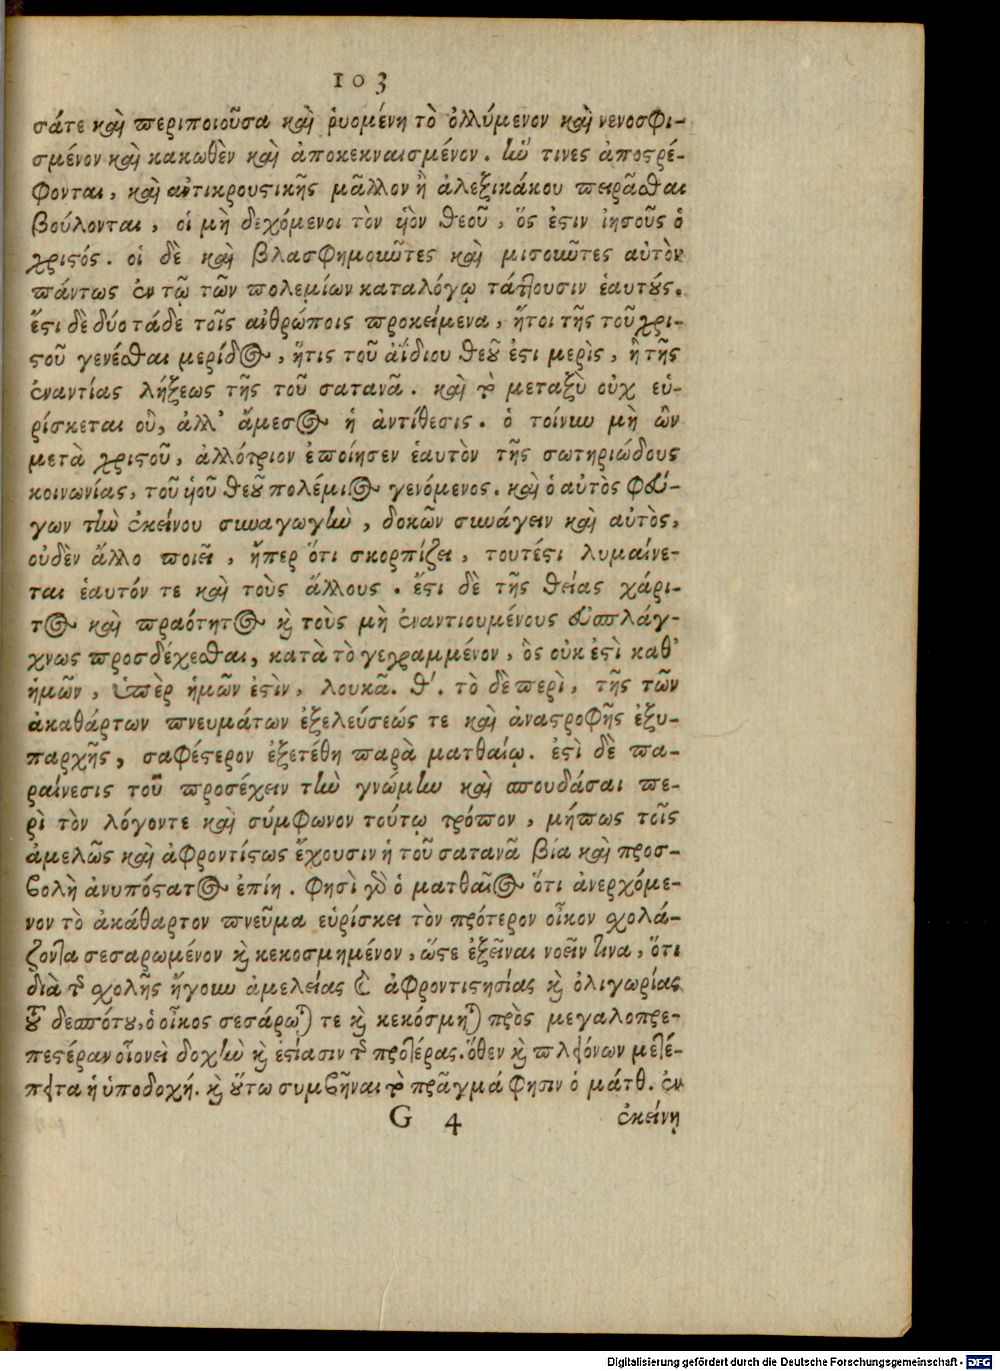 103
σάτε καὶ περιποιοῦσα καὶ ῥυομένη τὸ ὀλλύμενον καὶ νενοσφι-
σμένον καὶ κακωθὲν καὶ ἀποκεκναισμένον. ἣν τινες ἀποστρέ-
φονται, καὶ ἀντικρουστικῆς μᾶλλον ἢ ἀλεξικάκου πειρᾶσθαι
βούλονται, οἱ μὴ δεχόμενοι τὸν υἱὸν θεοῦ, ὅς ἐστιν ἰησοῦς ὁ
χριστός. οἱ δὲ καὶ βλασφημοῦντες καὶ μισοῦντες αὐτὸν
πάντως ἐν τῷ τῶν πολεμίων καταλόγῳ τάττουσιν ἑαυτούς.
ἔστι δὲ δύο τάδε τοῖς ἀνθρώποις προκείμενα, ἤτοι τῆς τοῦ χρι-
στοῦ γενέσθαι μερίδος, ἥτις τοῦ ἀϊδίου θεοῦ ἐστι μερὶς, ἢ τῆς
ἐναντίας λήξεως τῆς τοῦ σατανᾶ. καὶ τὸ μεταξὺ οὐχ εὑ-
ρίσκεται οὗ, ἀλλ' ἄμεσος ἡ ἀντίθεσις. ὁ τοίνυν μὴ ὢν
μετὰ χριστοῦ, ἀλλότριον ἐποίησεν ἑαυτὸν τῆς σωτηριώδους
κοινωνίας, τοῦ υἱοῦ θεοῦ πολέμιος γενόμενος. καὶ ὁ αὐτὸς φεύ-
γων τὴν ἐκείνου συναγωγὴν, δοκῶν συνάγειν καὶ αὐτὸς,
οὐδὲν ἄλλο ποιεῖ, ἤπερ ὅτι σκορπίζει, τουτέστι λυμαίνε-
ται ἑαυτόν τε καὶ τοὺς ἄλλους. ἔστι δὲ τῆς θείας χάρι-
τος καὶ πραότητος καὶ τοὺς μὴ ἐναντιουμένους εὐσπλάγ-
χνως προσδέχεσθαι, κατὰ τὸ γεγραμμένον, ὃς οὐκ ἐστὶ καθ'
ἡμῶν, ὑπὲρ ἡμῶν ἐστὶν, λουκᾶ. θ'. τὸ δὲ περὶ, τῆς τῶν
ἀκαθάρτων πνευμάτων ἐξελεύσεώς τε καὶ ἀναστροφῆς ἐξυ-
παρχῆς, σαφέστερον ἐξετέθη παρὰ ματθαίῳ. ἐστὶ δὲ πα-
ραίνεσις τοῦ προσέχειν τὴν γνώμην καὶ σπουδάσαι πε-
ρὶ τὸν λόγοντε καὶ σύμφωνον τούτῳ τρόπον, μήπως τοῖς
ἀμελῶς καὶ ἀφροντίστως ἔχουσιν ἡ τοῦ σατανᾶ βία καὶ προσ-
βολὴ ἀνυπόστατος ἐπίη. φησὶ γὰρ ὁ ματθαῖος ὅτι ἀνερχόμε-
νον τὸ ἀκάθαρτον πνεῦμα εὑρίσκει τὸν πρότερον οἶκον σχολά-
ζοντα σεσαρωμένον καὶ κεκοσμημένον, ὥστε ἐξεῖναι νοεῖν τινα, ὅτι
διὰ τῆς σχολῆς ἤγουν ἀμελείας καὶ ἀφροντιστησίας καὶ ὀλιγωρίας
τοῦ δεσπότου, ὁ οἶκος σεσάρωταί τε καὶ κεκόσμηται πρὸς μεγαλοπρε-
πεστέραν οἱονεὶ δοχὴν καὶ ἑστίασιν τῆς προτέρας. ὅθεν καὶ πλειόνων μετέ-
πειτα ἡ ὑποδοχή. καὶ οὕτω συμβῆναι τὸ πρᾶγμά φησιν ὁ μάτθ. ἐν
G 4 ἐκείνῃ
Digitalisierung gefördert durch die Deutsche Forschungsgemeinschaft - DFG